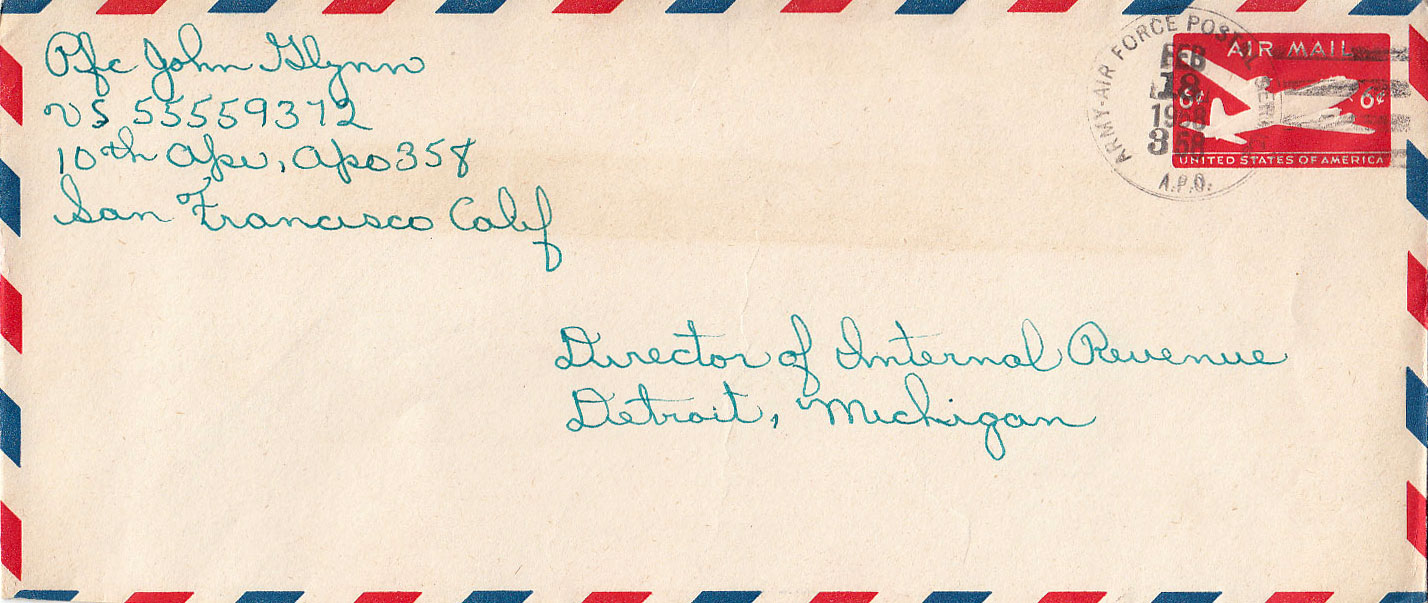 Pfc John Glynn
US 55559372
10th Apu, Apo 358
San Francisco Calif
ARMY-AIR FORCE POSTAL SERVICE
FEB
18
A.P.O.
AIR MAIL
6¢ 6¢
UNITED STATES OF AMERICA
Director of Internal Revenue
Detroit, Michigan